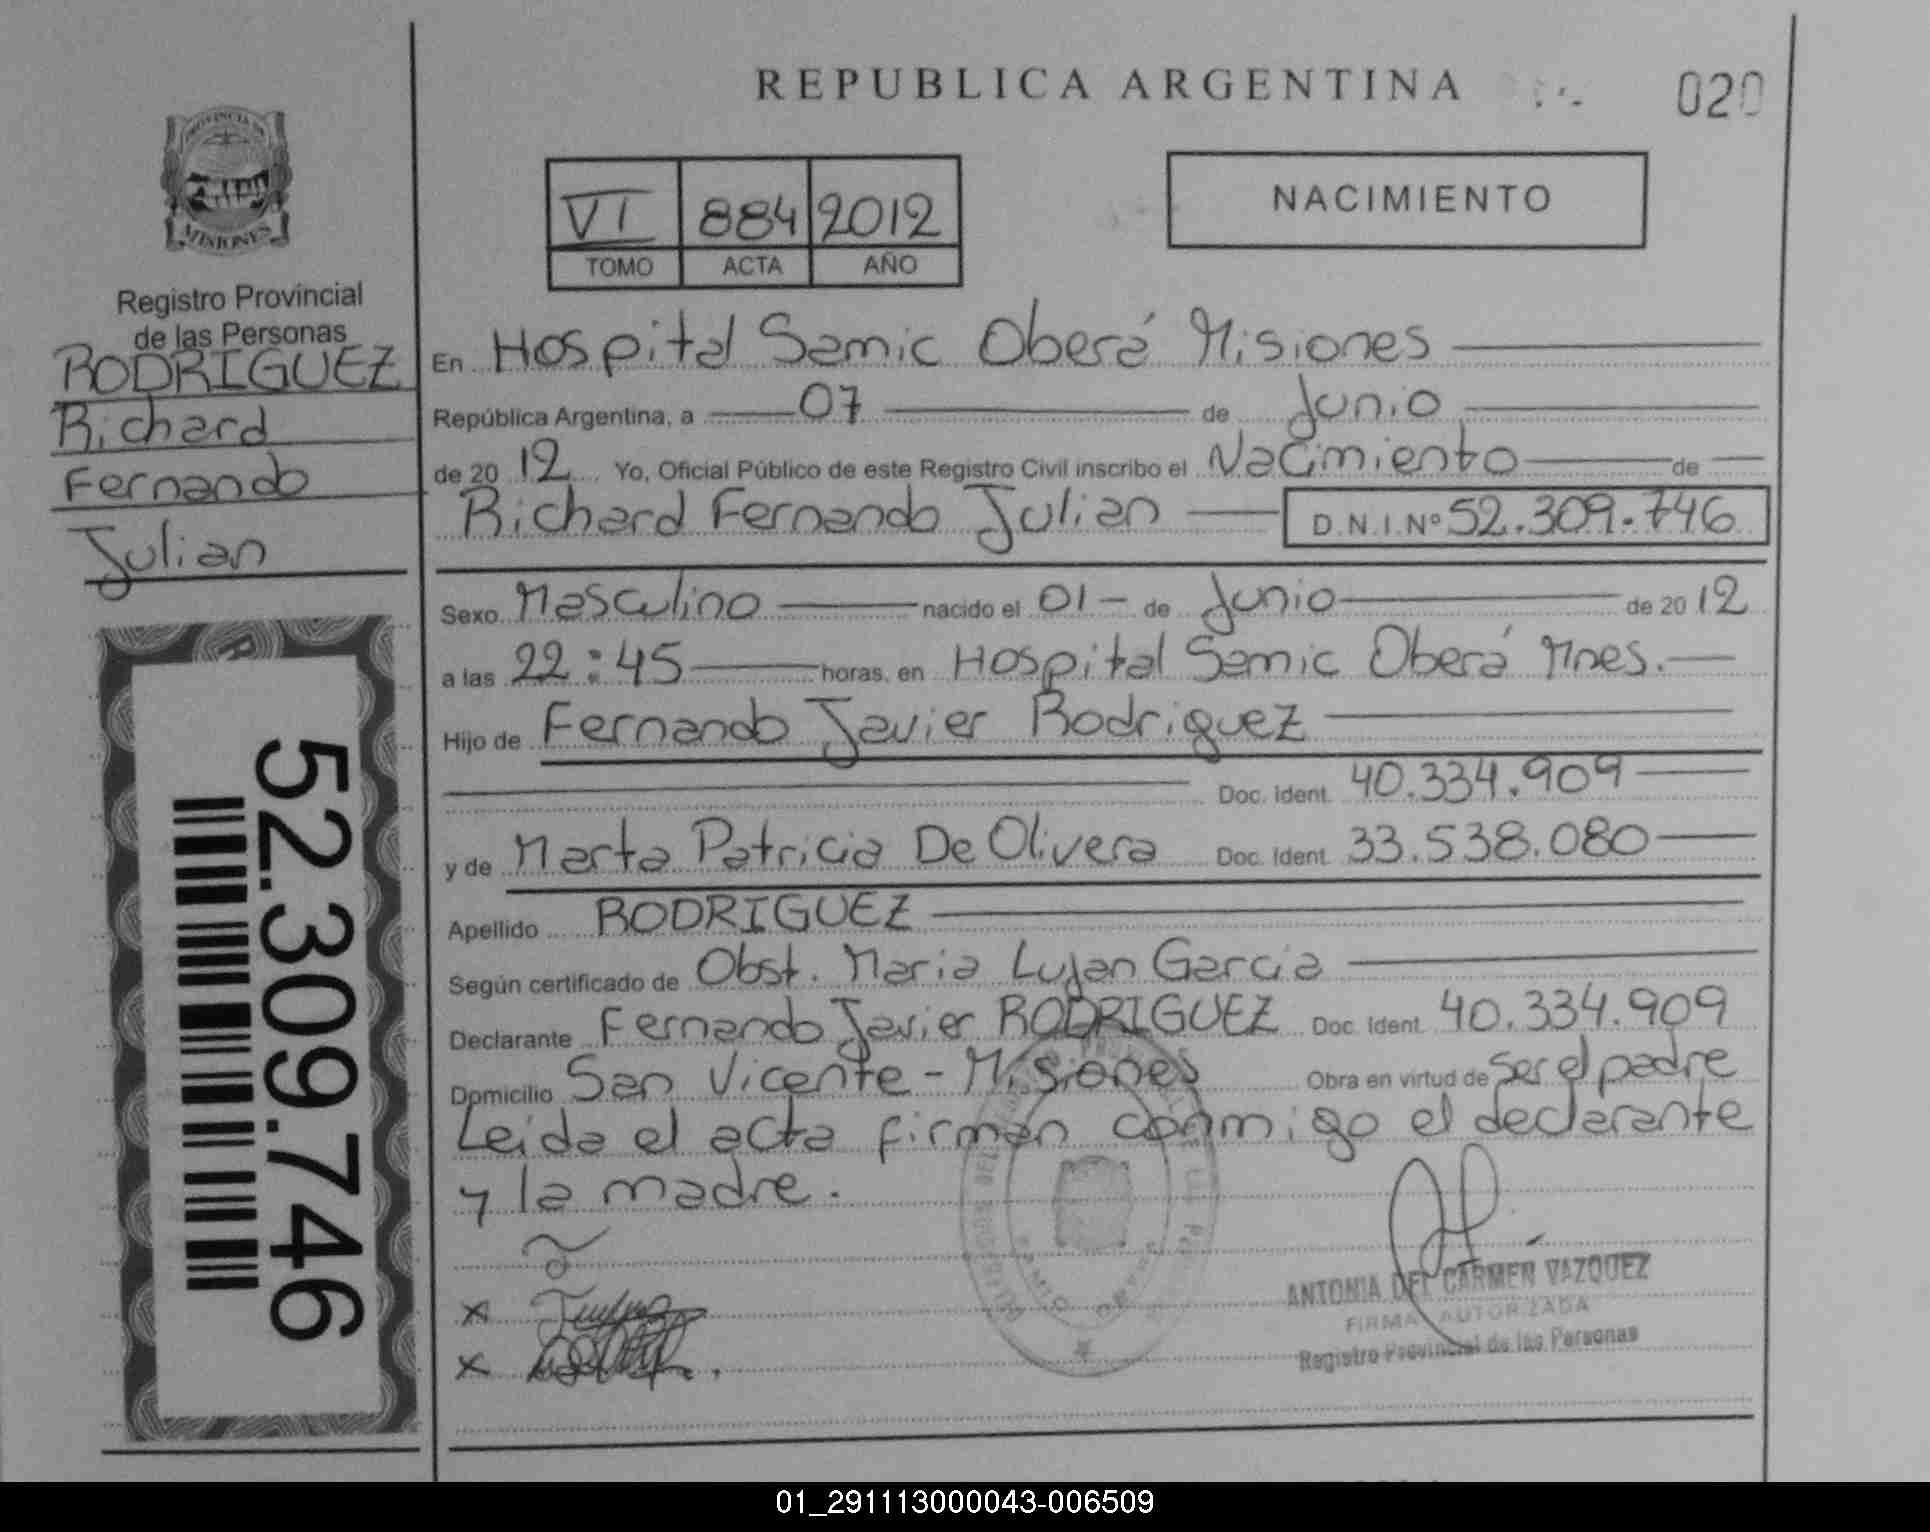 REPUBLICA ARGENTINA
020
PROVINCIA DE
MISIONES
Registro Provincial
de las Personas
RODRIGUEZ
Richard
Fernando
Julian
52.309.746
VI 884 2012
TOMO ACTA AÑO
NACIMIENTO
En Hospital Samic Oberá Misiones
República Argentina, a 07 de Junio
de 2012 Yo, Oficial Público de este Registro Civil inscribo el Nacimiento de
Richard Fernando Julian D.N.I.Nº 52.309.746
Sexo Masculino nacido el 01 - de Junio de 2012
a las 22:45 horas, en Hospital Samic Oberá Mnes.
Hijo de Fernando Javier Rodriguez
Doc. Ident. 40.334.909
y de Marta Patricia De Olivera Doc. Ident. 33.538.080
Apellido RODRIGUEZ
Según certificado de Obst. Maria Lujan Garcia
Declarante Fernando Javier RODRIGUEZ Doc. Ident. 40.334.909
Domicilio San Vicente - Misiones Obra en virtud de ser el padre
Leida el acta firman conmigo el declarante
y la madre.
x
x
ANTONIA DEL CARMEN VAZQUEZ
FIRMA AUTORIZADA
Registro Provincial de las Personas
01_291113000043-006509